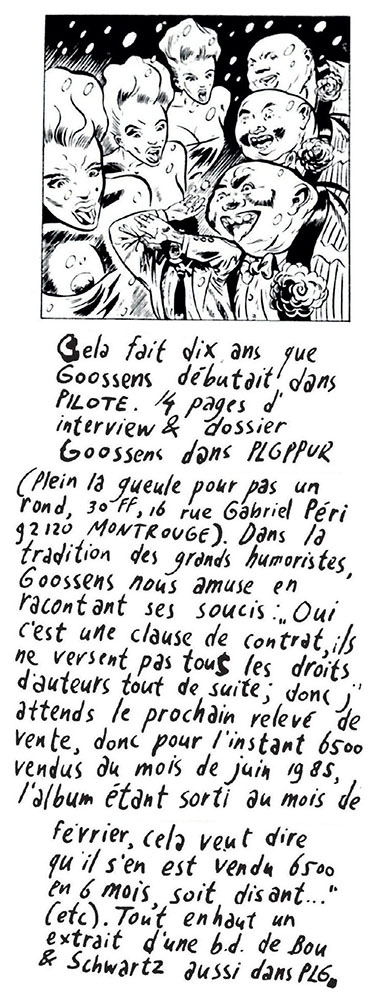 Cela fait dix ans que
Goossens débutait dans
PILOTE. 14 pages d'
interview & dossier
Goossens dans PLGPPUR
(Plein la gueule pour pas un
rond, 30 FF, 16 rue Gabriel Péri
92120 MONTROUGE). Dans la
tradition des grands humoristes,
Goossens nous amuse en
racontant ses soucis: „Oui
c'est une clause de contrat, ils
ne versent pas tous les droits
d'auteurs tout de suite; donc j'
attends le prochain relevé de
vente, donc pour l'instant 6500
vendus au mois de juin 1985,
l'album étant sorti au mois de
février, cela veut dire
qu'il s'en est vendu 6500
en 6 mois, soit disant..."
(etc). Tout en haut un
extrait d'une b.d. de Bou
& Schwartz aussi dans PLG„